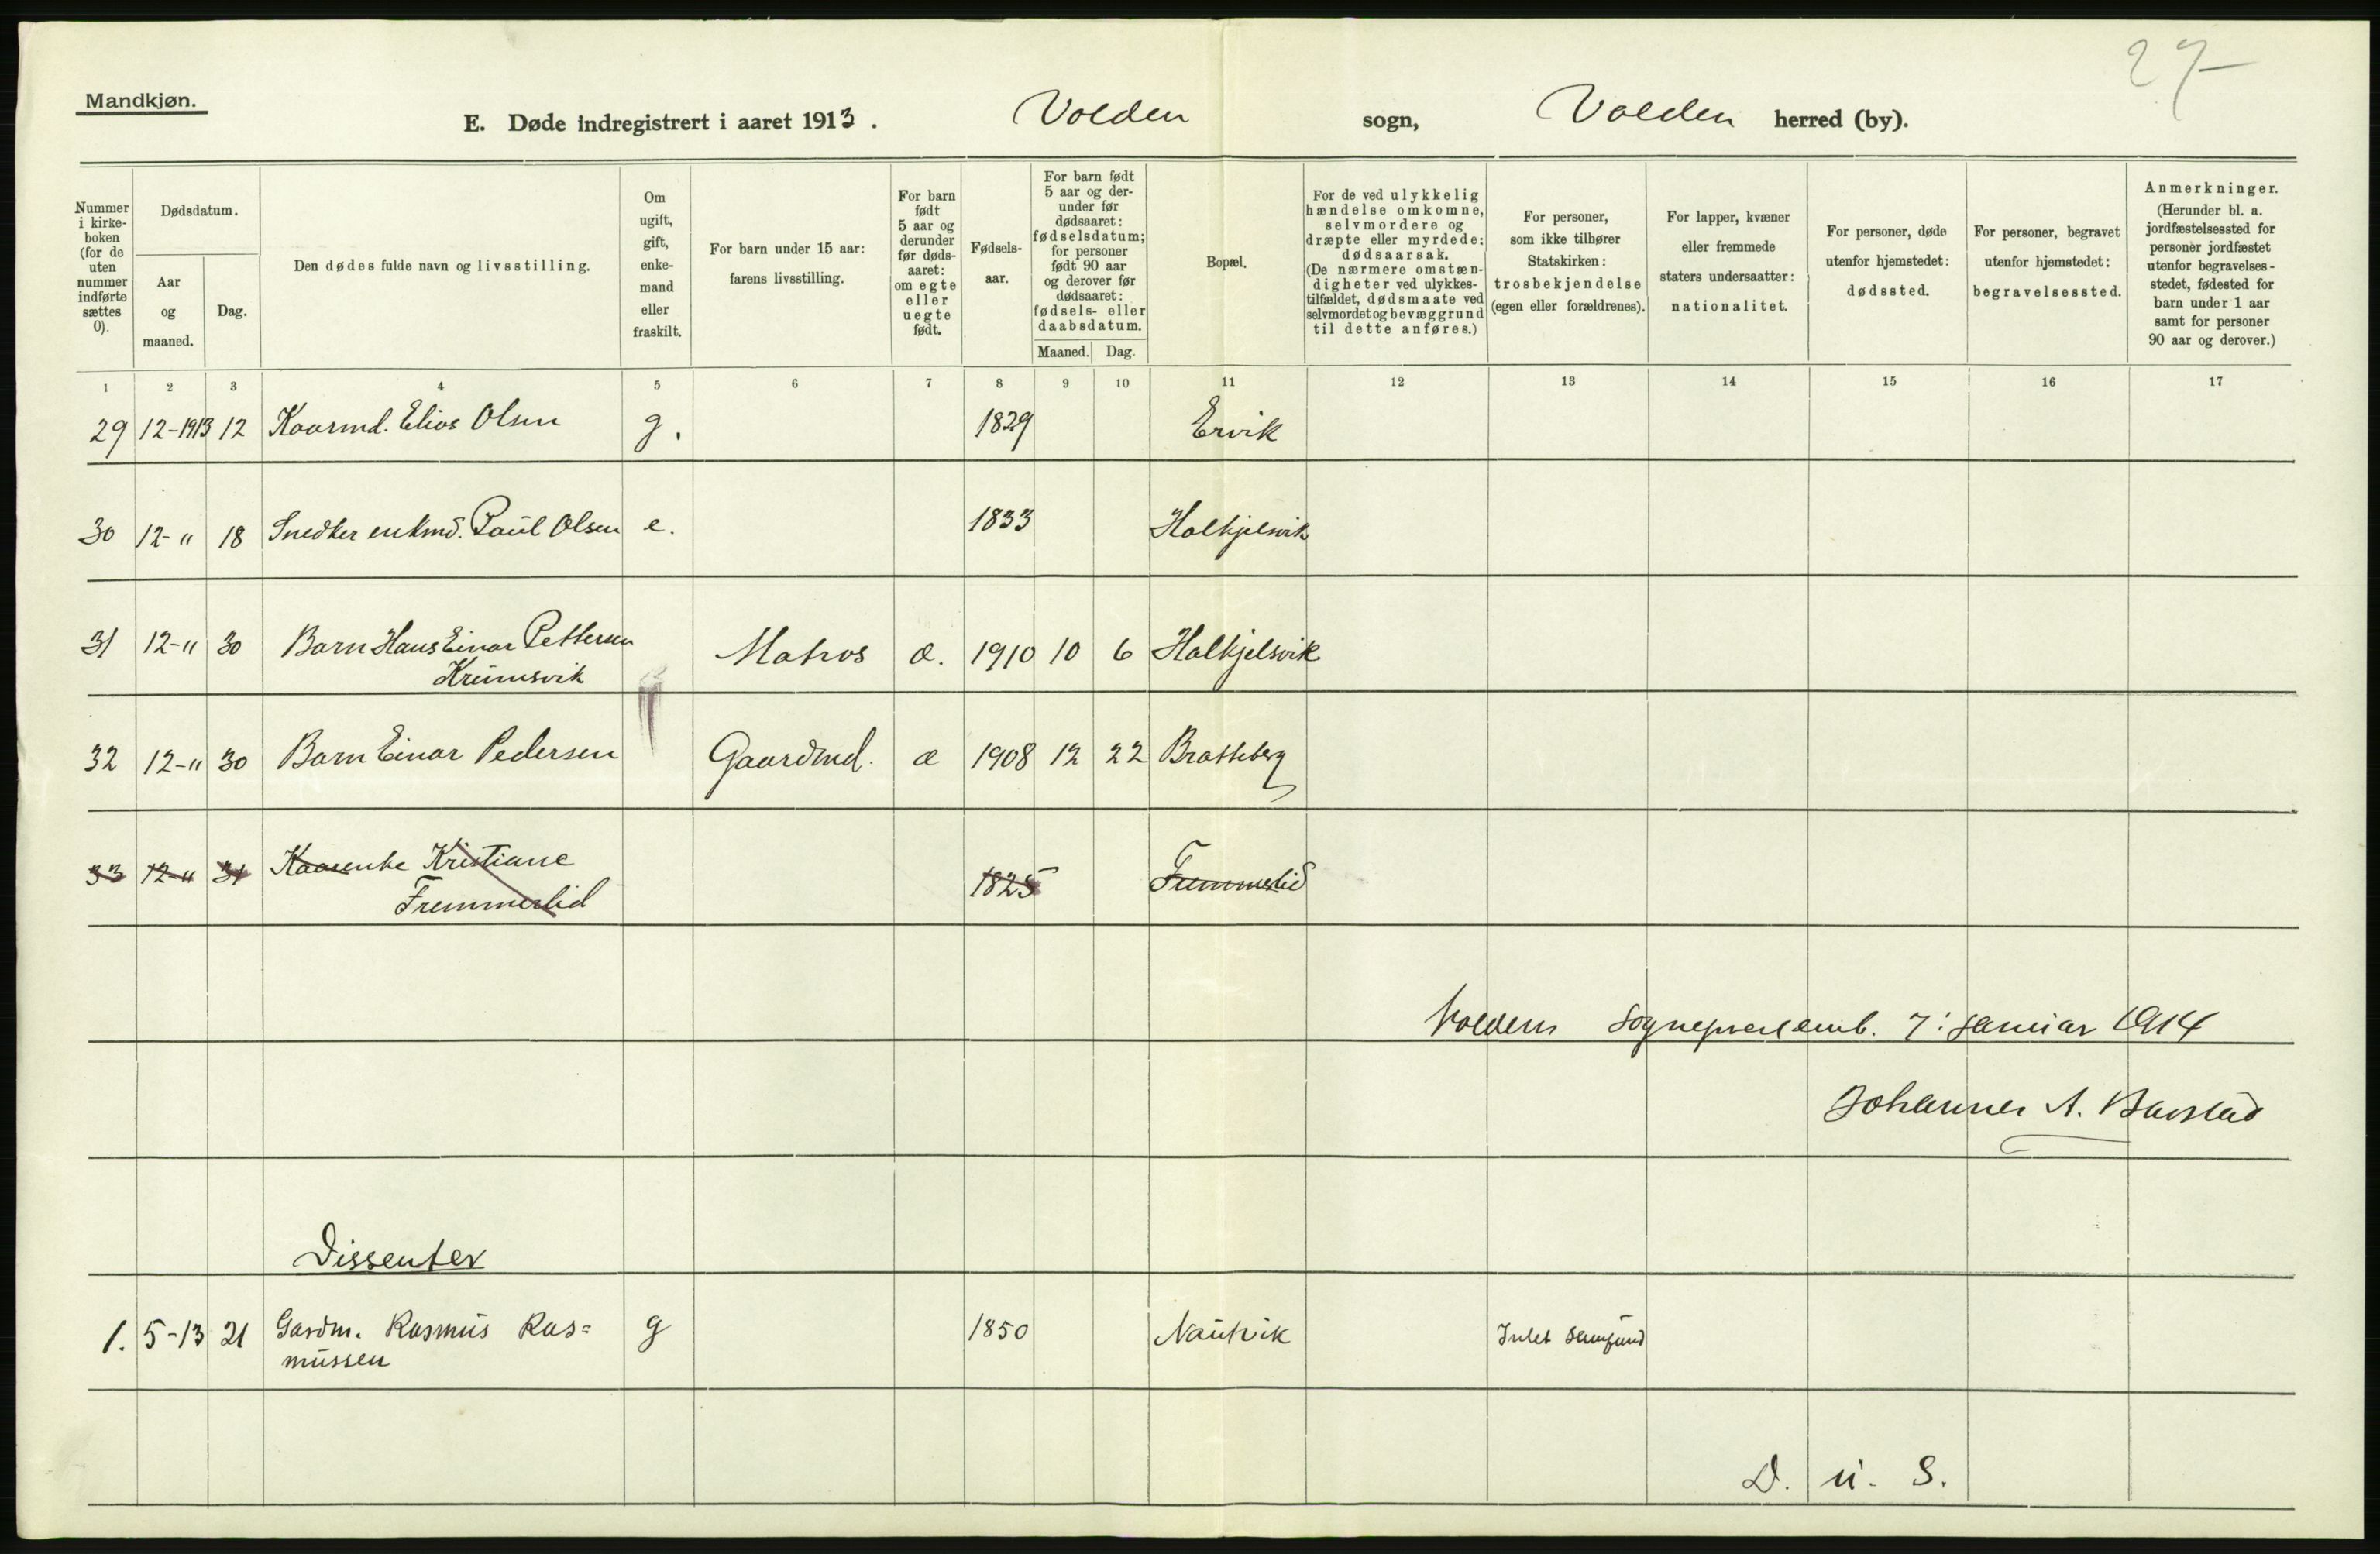 27
Mandkjøn.
E. Døde indregistrert i aaret 1913. Volden sogn, Volden herred (by).
Nummer i kirke-boken (for de uten nummer indførte sættes 0).
Dødsdatum.
Aar og maaned.
Dag.
Den dødes fulde navn og livsstilling.
Om ugift, gift, enke-mand eller fraskilt.
For barn under 15 aar: farens livsstilling.
For barn født 5 aar og derunder før døds-aaret: om egte eller uegte født.
Fødsels-aar.
For barn født 5 aar og der-under før dødsaaret: fødselsdatum; for personer født 90 aar og derover før dødsaaret: fødsels- eller daabsdatum.
Maaned. Dag.
Bopæl.
For de ved ulykkelig hændelse omkomne, selvmordere og dræpte eller myrdede: dødsaarsak. (De nærmere omstæn-digheter ved ulykkes-tilfældet, dødsmaate ved selvmordet og bevæggrund til dette anføres.)
For personer, som ikke tilhører Statskirken: trosbekjendelse (egen eller forældrenes).
For lapper, kvæner eller fremmede staters undersaatter: nationalitet.
For personer, døde utenfor hjemstedet: dødssted.
For personer, begravet utenfor hjemstedet: begravelsessted.
Anmerkninger. (Herunder bl. a. jordfæstelsessted for personer jordfæstet utenfor begravelses-stedet, fødested for barn under 1 aar samt for personer 90 aar og derover.)
1 2 3 4 5 6 7 8 9 10 11 12 13 14 15 16 17
29 12-1913 12 Kaarmd. Elias Olsen g. 1829 Ervik
30 12-" 18 Snedker enkmd. Paul Olsen e. 1833 Halkjelsvik
31 12-" 30 Barn Hans Einar Pettersen Matros æ. 1910 10 6 Halkjelsvik
Krumsvik
32 12-" 30 Barn Einar Pedersen Gaardmd. æ 1908 12 22 Bratteberg
33 12-" 31 Kaarenke Kristiane 1825 Fremmerlid
Fremmerlid
Volden sogneprestemb. 7: Januar 1914
Johannes A. Barstad
Dissenter
1. 5-13 21 Gardm. Rasmus Ras= g 1850 Nautvik Intet samfund
mussen
D. u. S.